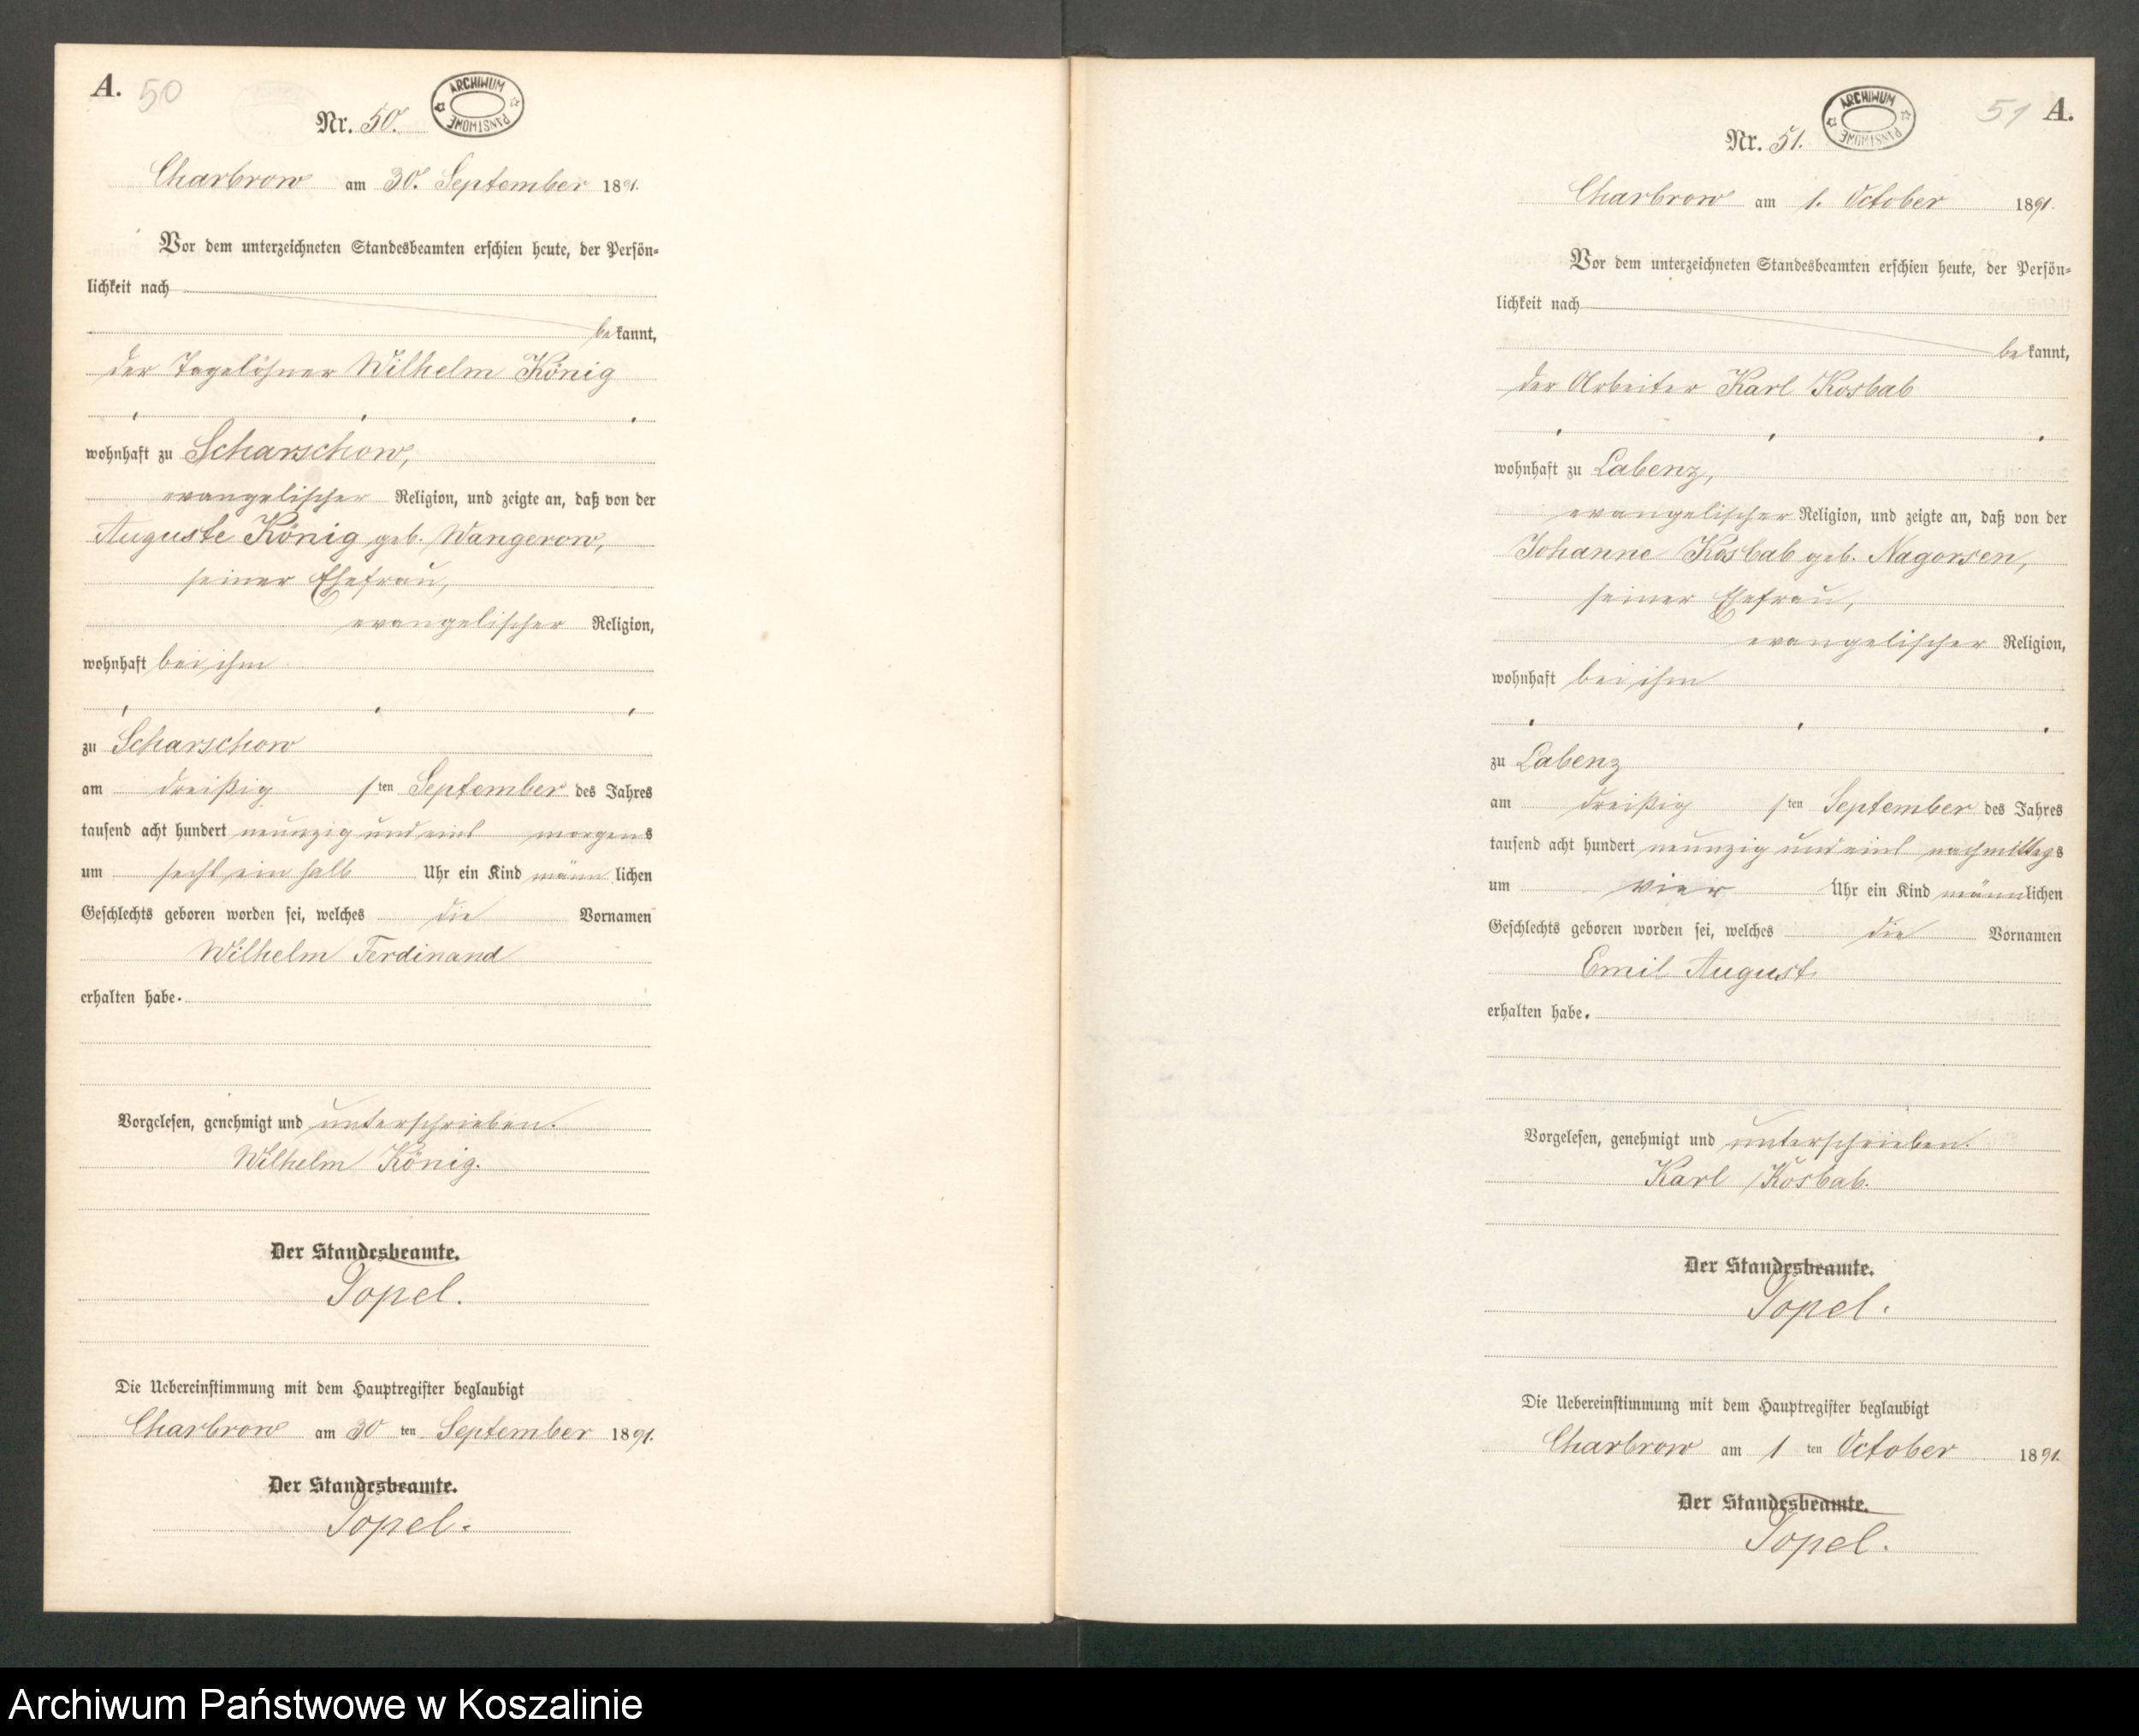 A. 50
ARCHIWUM PAŃSTWOWE
Nr. 50.
Charbrow am 30. September 1891.
Vor dem unterzeichneten Standesbeamten erschien heute, der Persön-
lichkeit nach
bekannt,
der Tagelöhner Wilhelm König
wohnhaft zu Scharschow,
evangelischer Religion, und zeigte an, daß von der
Auguste König geb. Wangerow,
seiner Ehefrau,
evangelischer Religion,
wohnhaft bei ihm
zu Scharschow
am dreißigsten September des Jahres
tausend acht hundert neunzig und eins morgens
um sechs ein halb Uhr ein Kind männlichen
Geschlechts geboren worden sei, welches die Vornamen
Wilhelm Ferdinand
erhalten habe.
Vorgelesen, genehmigt und unterschrieben.
Wilhelm König.
Der Standesbeamte.
Topel.
Die Uebereinstimmung mit dem Hauptregister beglaubigt
Charbrow am 30 ten September 1891.
Der Standesbeamte.
Topel.
51 A.
ARCHIWUM PAŃSTWOWE
Nr. 51.
Charbrow am 1. October 1891.
Vor dem unterzeichneten Standesbeamten erschien heute, der Persön-
lichkeit nach
bekannt,
der Arbeiter Karl Kosbab
wohnhaft zu Labenz,
evangelischer Religion, und zeigte an, daß von der
Johanne Kosbab geb. Nagorsen,
seiner Ehefrau,
evangelischer Religion,
wohnhaft bei ihm
zu Labenz
am dreißigsten September des Jahres
tausend acht hundert neunzig und eins nachmittags
um vier Uhr ein Kind männlichen
Geschlechts geboren worden sei, welches die Vornamen
Emil August
erhalten habe.
Vorgelesen, genehmigt und unterschrieben.
Karl Kosbab.
Der Standesbeamte.
Topel.
Die Uebereinstimmung mit dem Hauptregister beglaubigt
Charbrow am 1 ten October 1891.
Der Standesbeamte.
Topel.
Archiwum Państwowe w Koszalinie